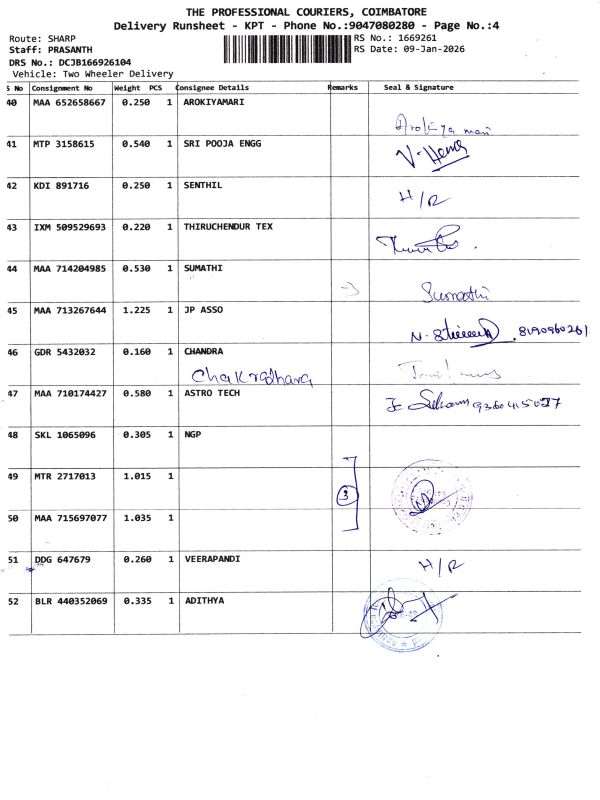 THE PROFESSIONAL COURIERS, COIMBATORE
Delivery Runsheet - KPT - Phone No.:9047080280 - Page No.:4
Route: SHARP
RS No.: 1669261
Staff: PRASANTH
RS Date: 09-Jan-2026
DRS No.: DCJB166926104
Vehicle: Two Wheeler Delivery
S No Consignment No Weight PCS Consignee Details Remarks Seal & Signature
40 MAA 652658667 0.250 1 AROKIYAMARI
Arokiya mari
41 MTP 3158615 0.540 1 SRI POOJA ENGG
V. Hema
42 KDI 891716 0.250 1 SENTHIL
H/R
43 IXM 509529693 0.220 1 THIRUCHENDUR TEX
44 MAA 714204985 0.530 1 SUMATHI
Sumathi
45 MAA 713267644 1.225 1 JP ASSO
8190960261
46 GDR 5432032 0.160 1 CHANDRA
Chakradhara
47 MAA 710174427 0.580 1 ASTRO TECH
48 SKL 1065096 0.305 1 NGP
49 MTR 2717013 1.015 1
3
50 MAA 715697077 1.035 1
51 DDG 647679 0.260 1 VEERAPANDI
H/R
52 BLR 440352069 0.335 1 ADITHYA